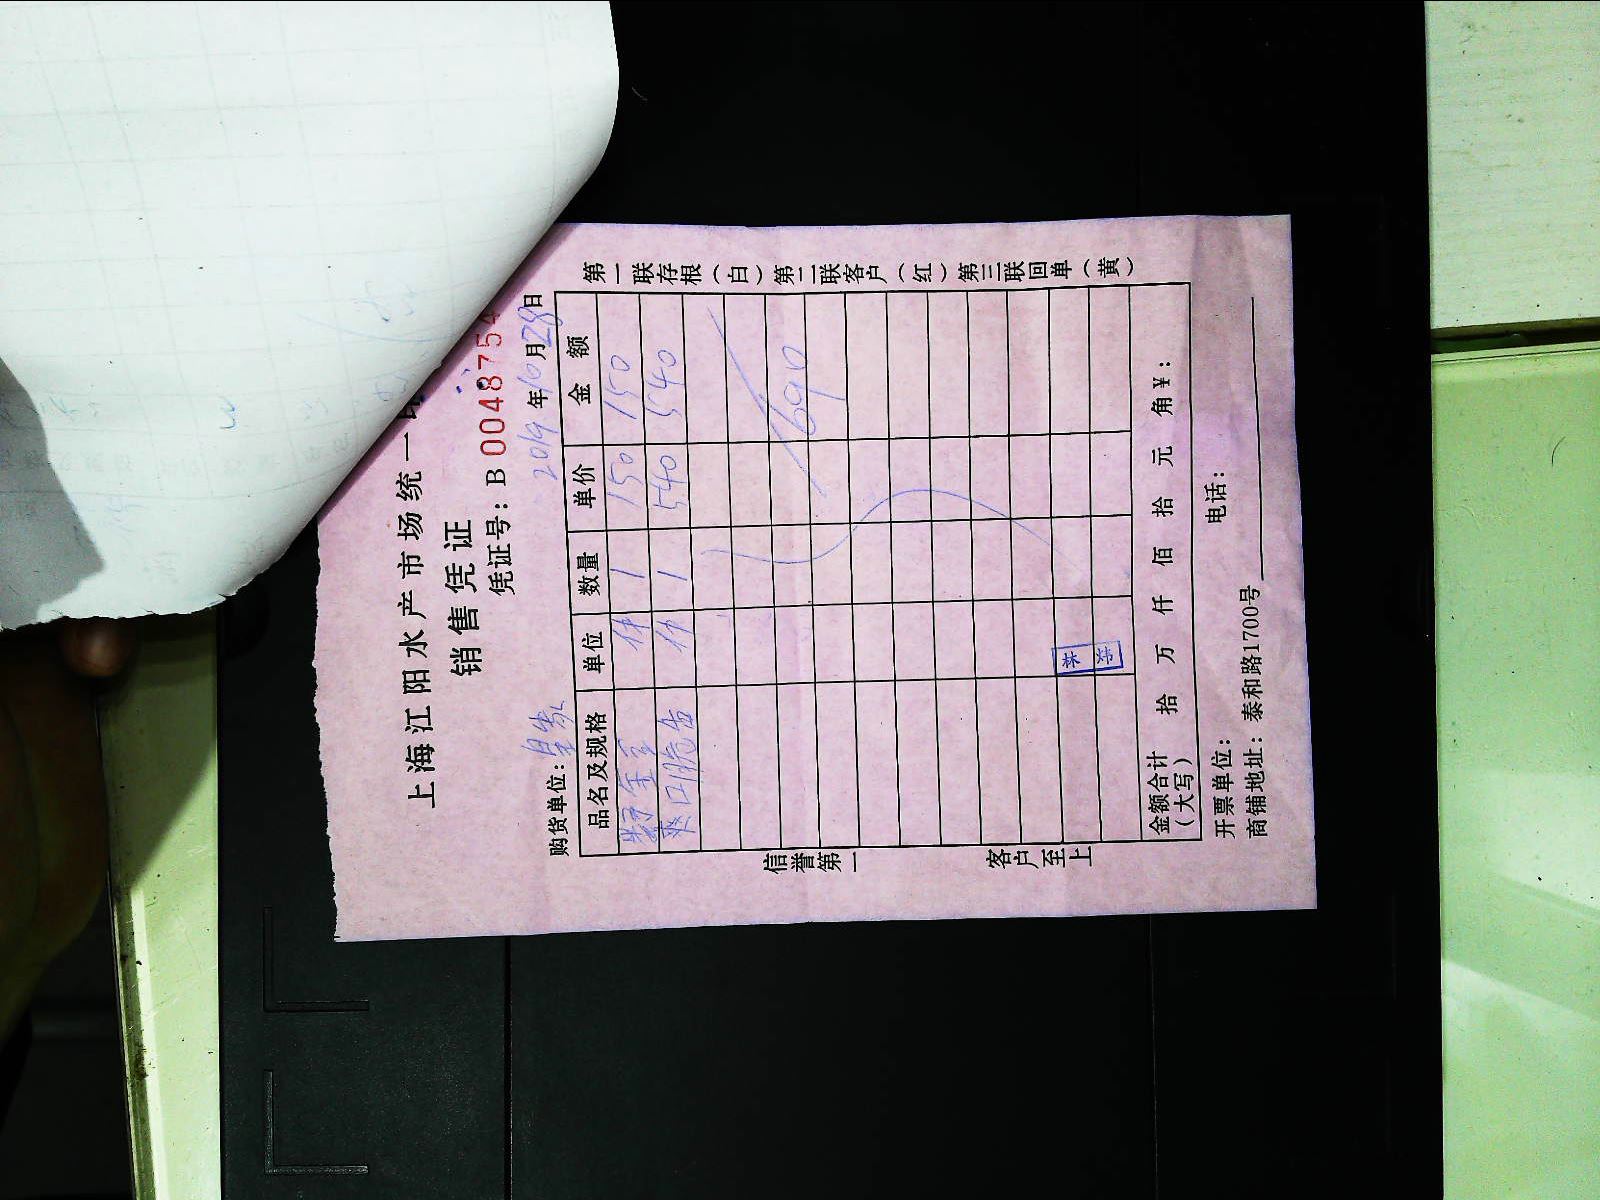 上海江阳水产市场统一
销售凭证
凭证号：B 0048754
购货单位：皇家 2019年10月28日
品名及规格 单位 数量 单价 金额
件 1 150 150
爽口脆 件 1 540 540
690
金额合计（大写） 拾 万 仟 佰 拾 元 角 ¥：
开票单位： 电话：
商铺地址：泰和路1700号
第一联存根（白） 第二联客户（红） 第三联回单（黄）
信誉第一 客户至上